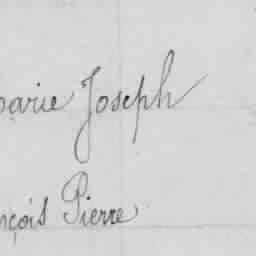 parie Joseph
nçois Pierre